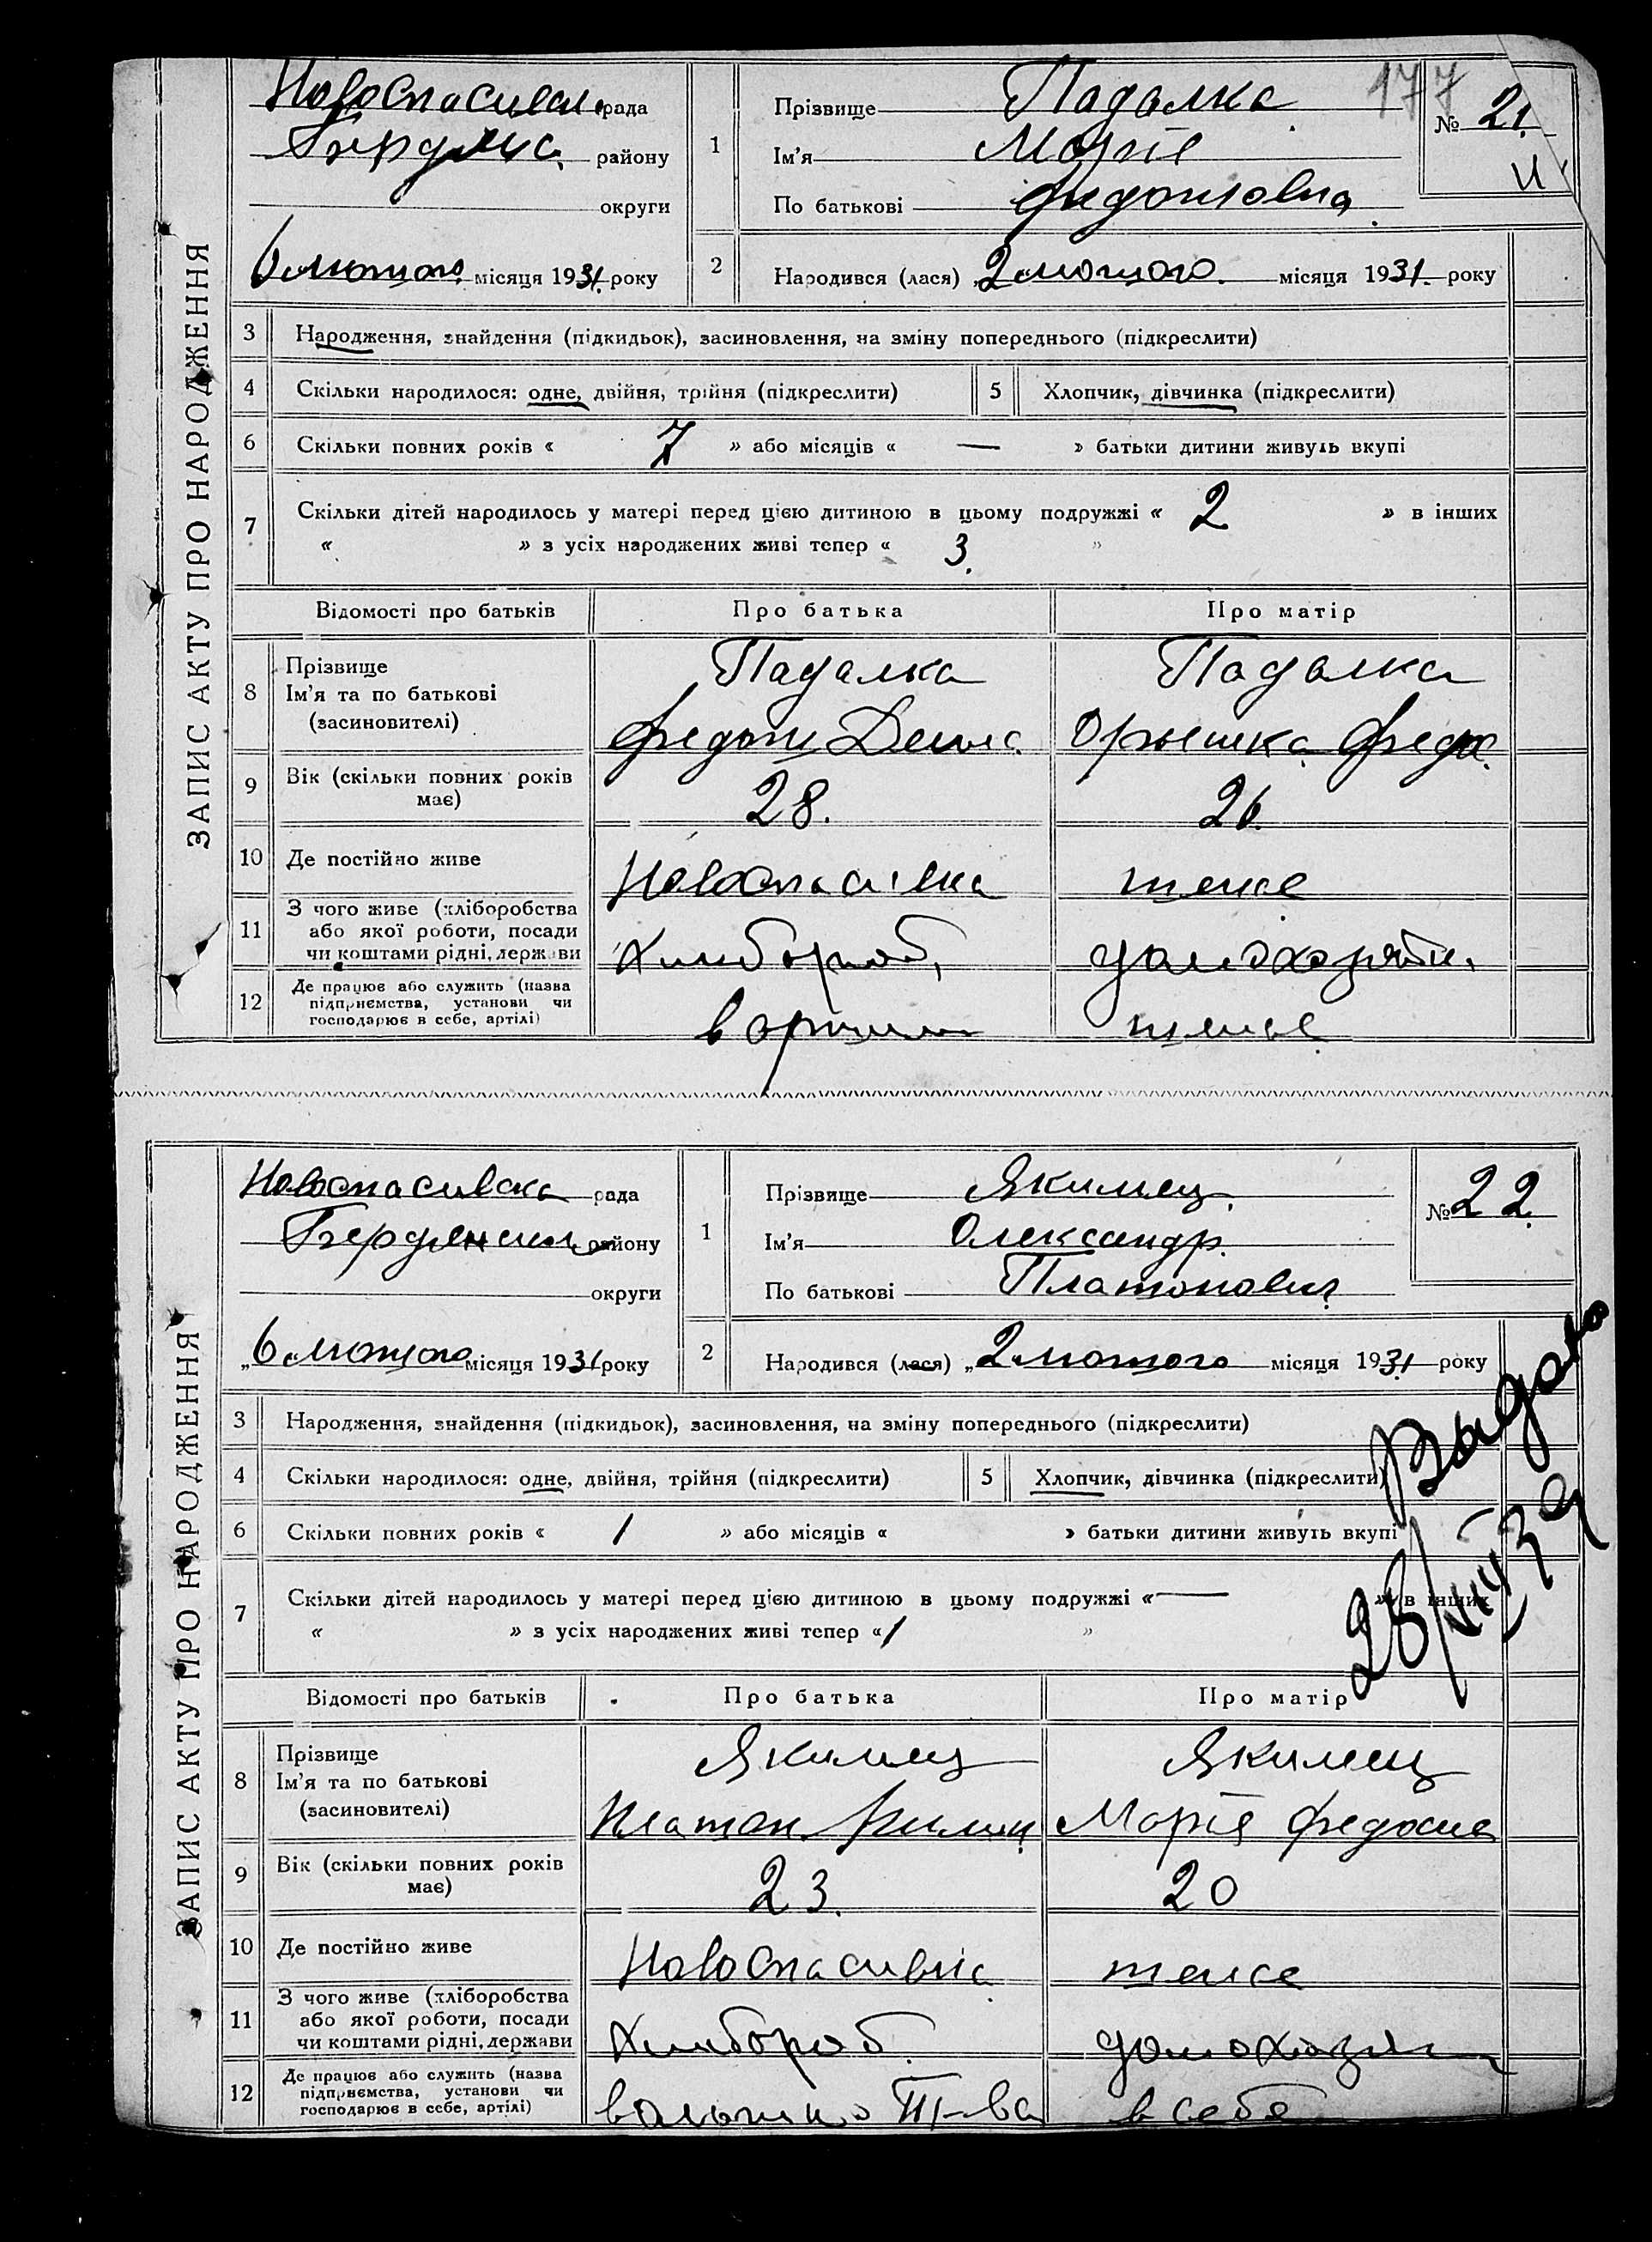 177
Новоспасивск рада
Бердянс. району
округи
6 лютого місяця 1931. року
1
Прізвище Падалка
Ім'я Марія
По батькові
№ 21.
2
Народився (лася) „2 лютого місяця 1931. року
ЗАПИС АКТУ ПРО НАРОДЖЕННЯ
3 Народження, знайдення (підкидьок), засиновлення, на зміну попереднього (підкреслити)
4 Скільки народилося: одне, двійня, трійня (підкреслити) 5 Хлопчик, дівчинка (підкреслити)
6 Скільки повних років « 7 » або місяців « — » батьки дитини живуть вкупі
7 Скільки дітей народилось у матері перед цією дитиною в цьому подружжі « 2 » в інших
« » з усіх народжених живі тепер « 3. »
Відомості про батьків Про батька Про матір
8 Прізвище Падалка Падалка
Ім'я та по батькові
(засиновителі)
9 Вік (скільки повних років 28. 26.
має)
10 Де постійно живе Новоспасівка теже
11 З чого живе (хліборобства
або якої роботи, посади
чи коштами рідні, держави Хлибороб, домохозяйк.
12 Де працює або служить (назва
підприємства, установи чи
господарює в себе, артілі) в артили теже
Новоспасивска рада
Бердянськ району
округи
„6 лютого місяця 1931 року
1
Прізвище Якимец
Ім'я Олександр.
По батькові Платонович
№ 22.
2
Народився (лася) „2 лютого місяця 1931 року
ЗАПИС АКТУ ПРО НАРОДЖЕННЯ
3 Народження, знайдення (підкидьок), засиновлення, на зміну попереднього (підкреслити)
4 Скільки народилося: одне, двійня, трійня (підкреслити) 5 Хлопчик, дівчинка (підкреслити)
6 Скільки повних років « 1 » або місяців « » батьки дитини живуть вкупі
7 Скільки дітей народилось у матері перед цією дитиною в цьому подружжі «— » в інших
« » з усіх народжених живі тепер «1 »
Выдано
28/VIII 39
Відомості про батьків Про батька Про матір
8 Прізвище Якимец Якимец
Ім'я та по батькові
(засиновителі) Платон Марія
9 Вік (скільки повних років 23. 20
має)
10 Де постійно живе Новоспасивка теже
11 З чого живе (хліборобства
або якої роботи, посади
чи коштами рідні, держави Хлибороб. домохозяй
12 Де працює або служить (назва
підприємства, установи чи
господарює в себе, артілі) т-ва в себя